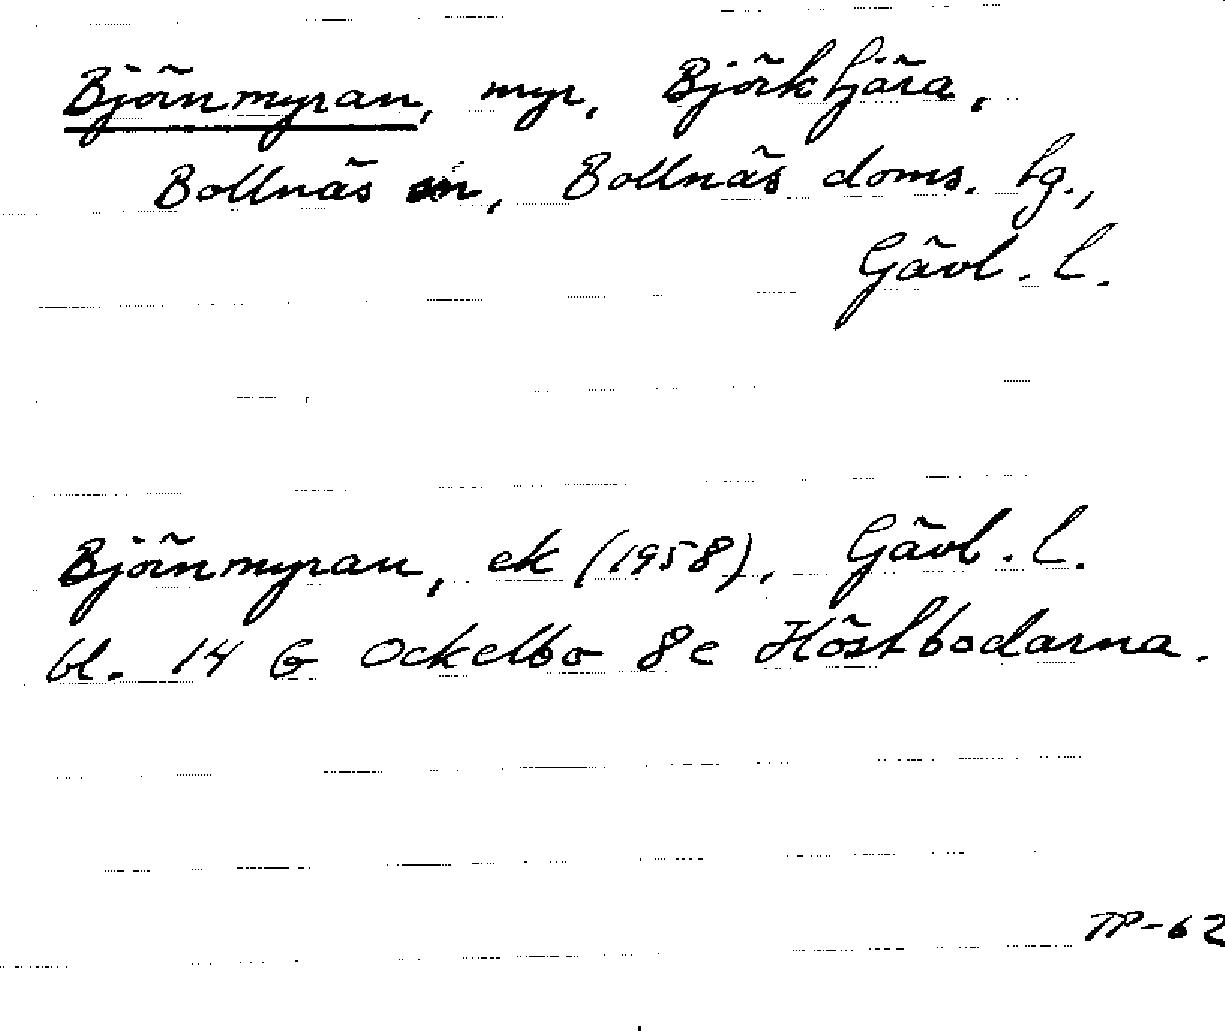 Björnmyran, myr, Björktjära,
Bollnäs sn, Bollnäs doms. tg.,
Gävl. l.
Björnmyran, ek (1958), Gävl. l.
bl. 14 G Ockelbo 8c Höstbodarna.
TP-62